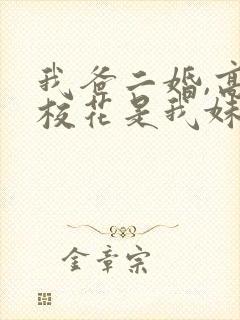 我爸二婚,高
校花是我妹
金章宗